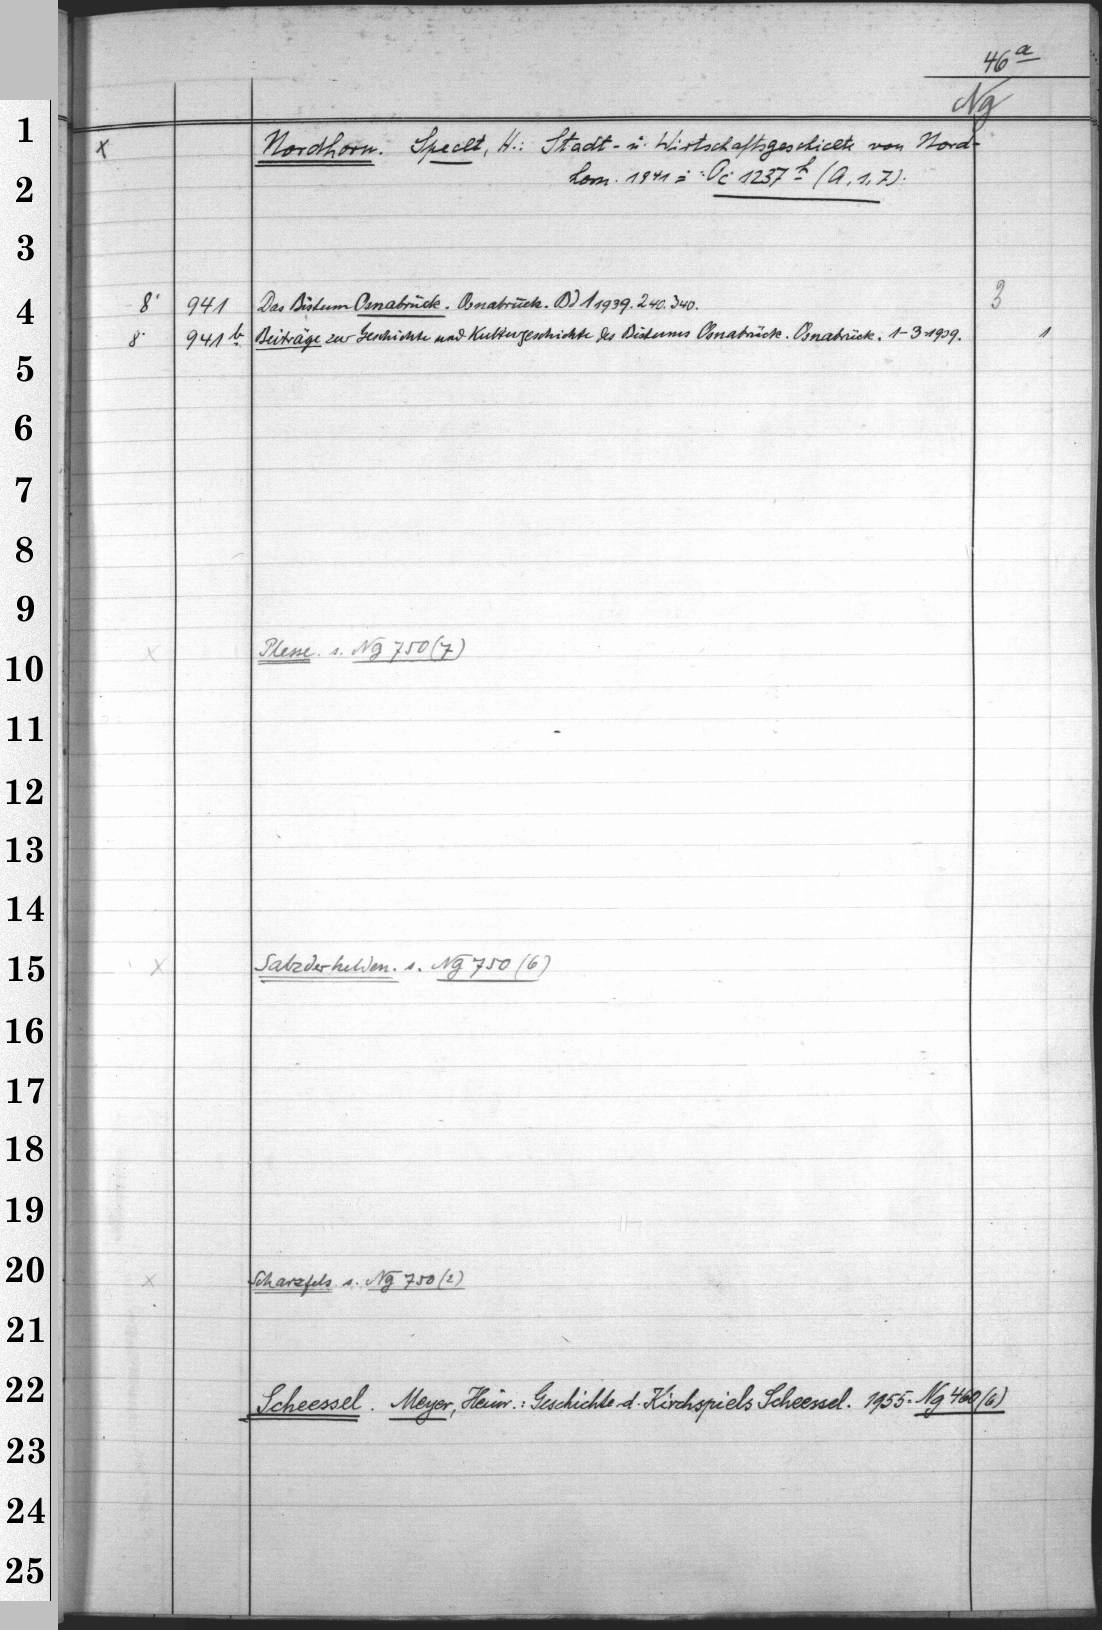 46a
Ng
1
x Nordhorn. Specht, H.: Stadt- u. Wirtschaftsgeschichte von Nord-
2
horn. 1941 = Oc 1237 h (A, 1, 7).
3
4
8° 941 Das Bistum Osnabrück. Osnabrück. Bd 1 1939. 2 40. 3 40. 3
8° 941 b Beiträge zur Geschichte und Kulturgeschichte des Bistums Osnabrück. Osnabrück. 1-3 1939. 1
5
6
7
8
9
x Plesse. s. Ng 750 (7)
10
11
12
13
14
15
x Salzderhelden. s. Ng 750 (6)
16
17
18
19
20
x Scharzfels s. Ng 750 (2)
21
22
Scheessel. Meyer, Heinr.: Geschichte d. Kirchspiels Scheessel. 1955 = Ng 460 (6)
23
24
25